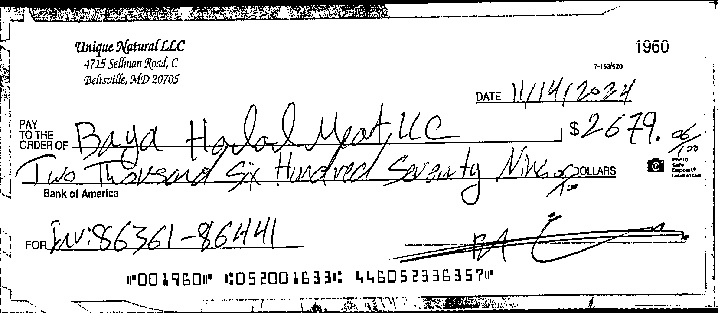 Unique Natural LLC
1960
4715 Sellman Road, C
Beltsville, MD 20705
7-163/520
DATE 11/14/2024
PAY TO THE ORDER OF Baya Halal Meat, LLC $2679. 06/100
Two Thousand Six Hundred Seventy Nine DOLLARS
Bank of America
FOR Inv: 86361-86441
⑈001960⑈ ⑆052001633⑆ 446052336357⑈